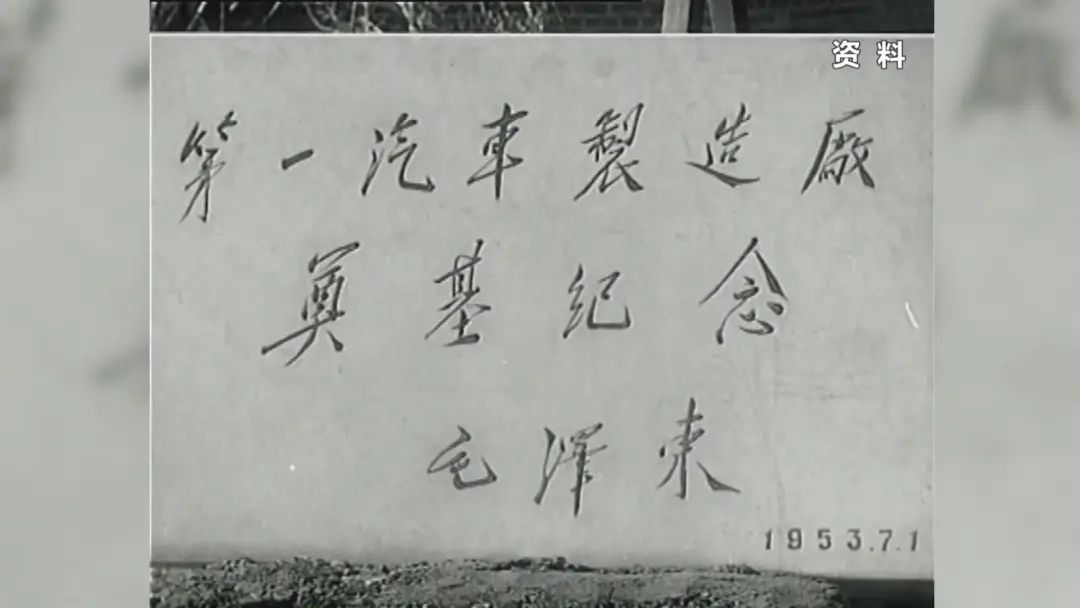 资料
第一汽車製造廠
奠基紀念
毛澤東
1953.7.1